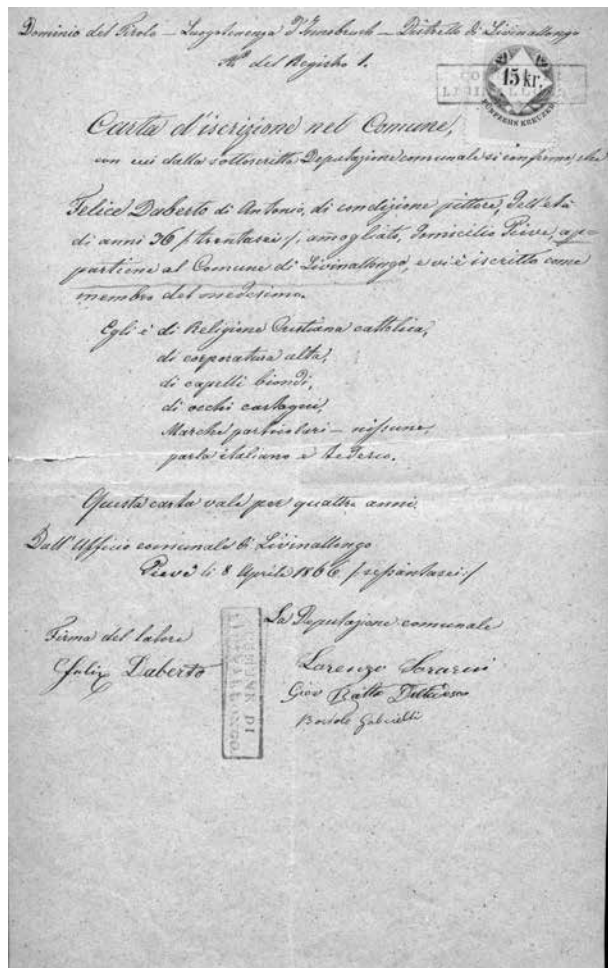 Dominio del Tirolo – Luogotenenza d'Innsbruck – Distretto di Livinallongo
N.º del Registro 1.
15 kr.
FÜNFZEHN KREUZER
Carta d'iscrizione nel Comune,
con cui dalla sottoscritta Deputazione comunale si conferma, che
Felice Daberto di Antonio, di condizione pittore, dell'età
di anni 36 /:trentasei:/, amogliato, domicilio Pieve, apa
partiene al Comune di Livinallongo, e vi è iscritto come
membro del medesimo.
Egli è di Religione Cristiana cattolica,
di corporatura alta,
di capelli biondi,
di occhi castagni,
Marche particolari – nissune,
parla italiano e tedesco.
Questa carta vale per quattro anni.
Dall'Ufficio comunale di Livinallongo
Pieve li 8 Aprile 1866 /:sessantasei:/
La Deputazione comunale
Firma del latore
Felix Daberto
Lorenzo
Giov
Gabrielli
COMUNE DI
LIVINALLONGO